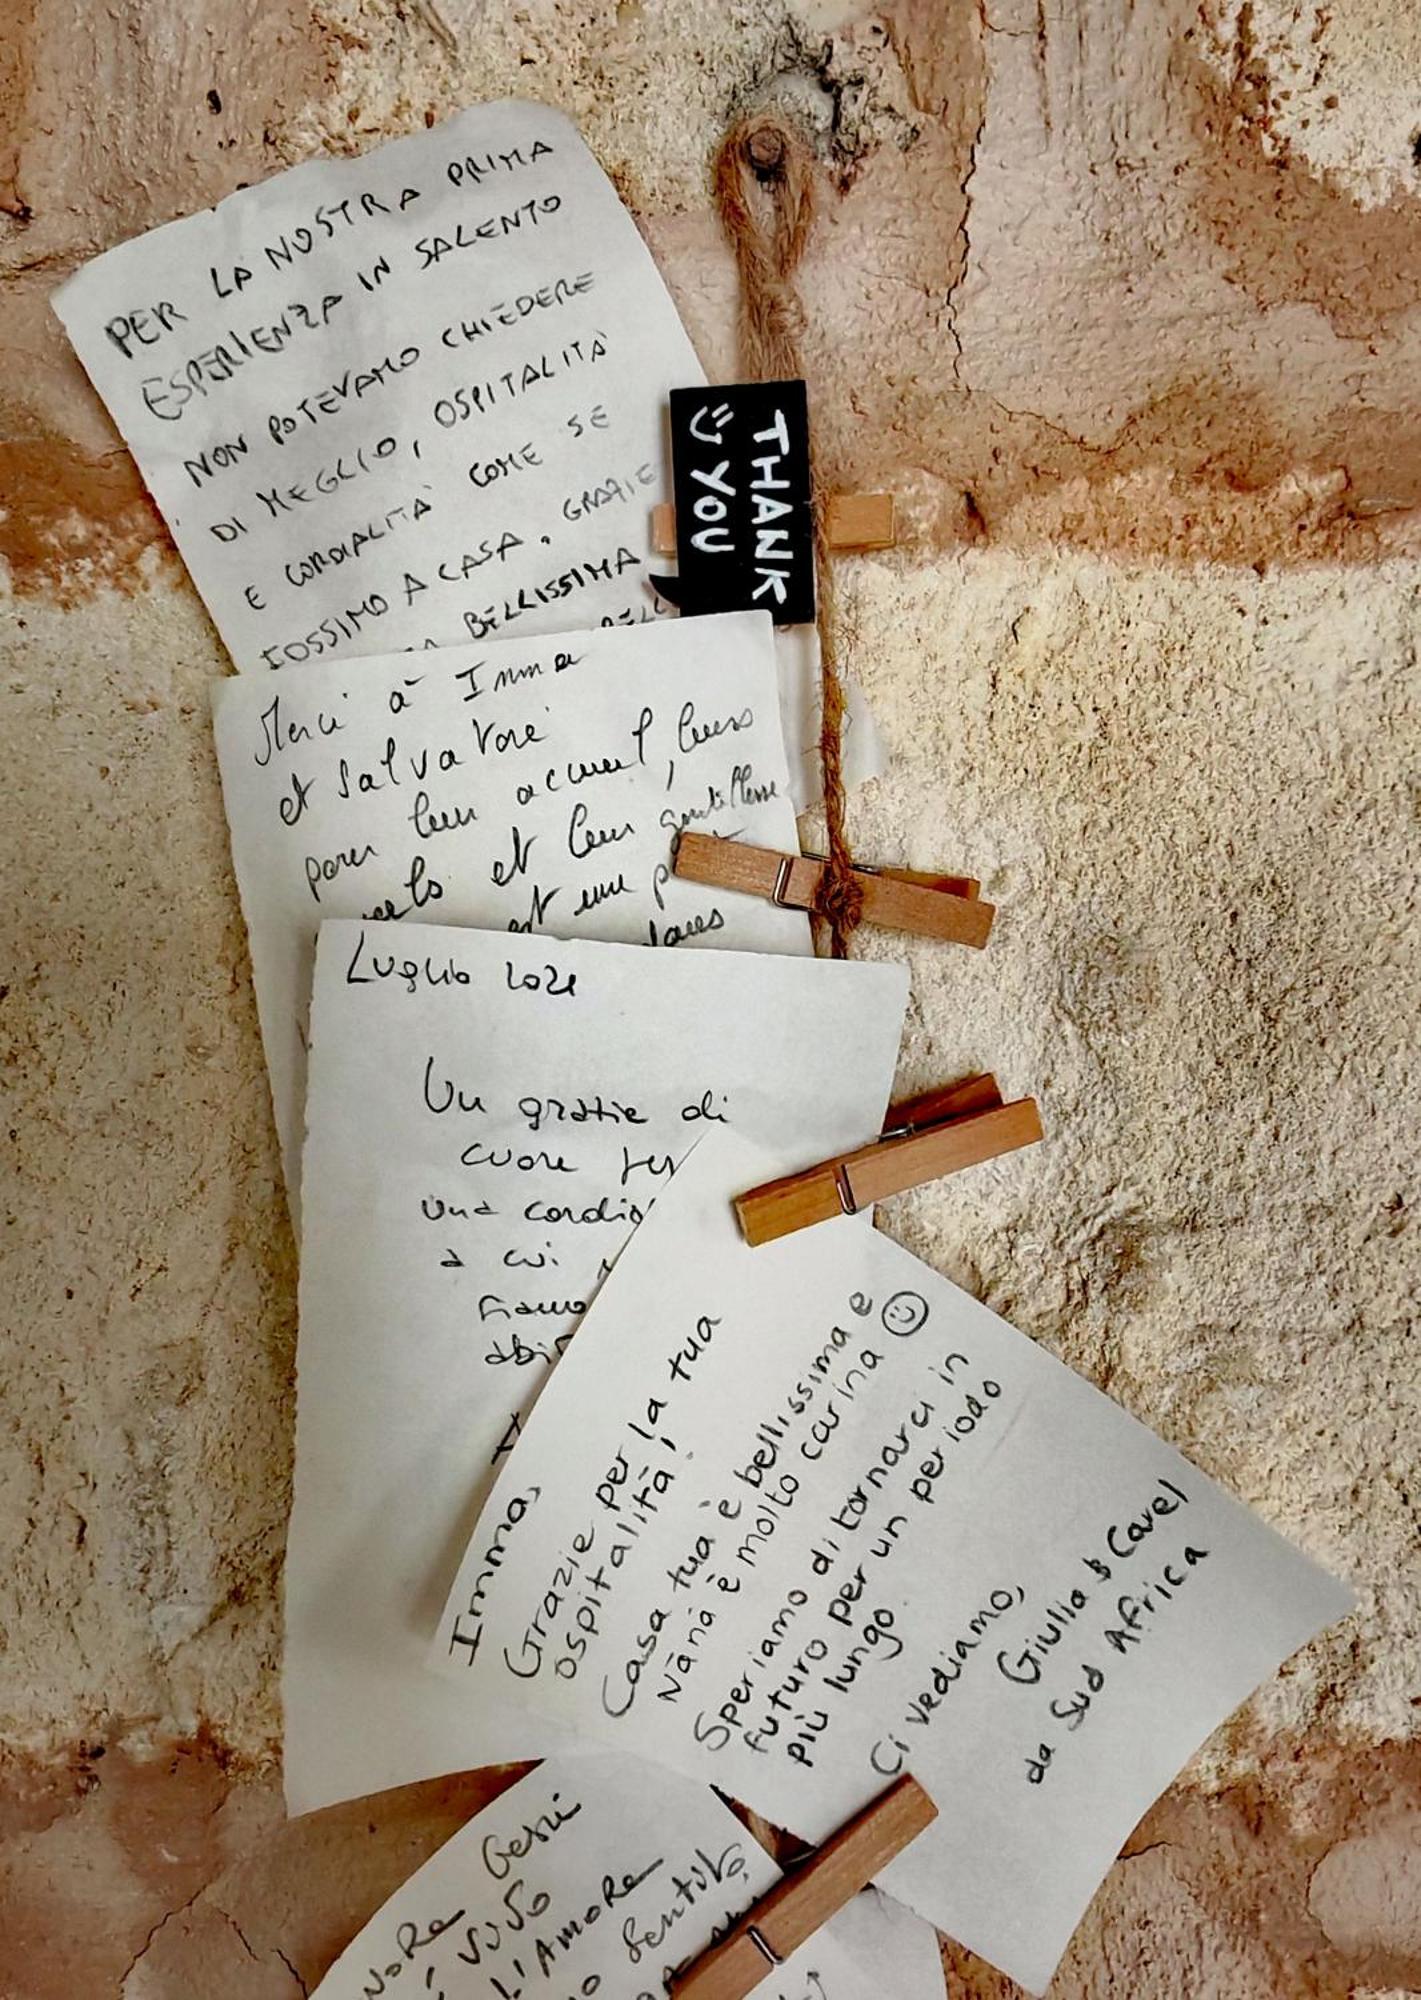 PER LA NOSTRA PRIMA
ESPERIENZA IN SALENTO
NON POTEVAMO CHIEDERE
DI MEGLIO, OSPITALITÀ
E CORDIALITÀ COME SE
FOSSIMO A CASA. GRAZIE
BELLISSIMA
THANK
YOU
Merci à Imma
et Salvatore
pour leur accueil, leurs
et leur gentillesse
est une
dans
Luglio 2021
Un grazie di
cuore per
una cordia
a cui
siamo
abbi
Imma,
Grazie per la tua
ospitalità!
Casa tua è bellissima e
Nanà è molto carina
Speriamo di tornarci in
futuro per un periodo
più lungo.
Ci vediamo,
Giulia & Cavel
da Sud Africa
Gesù
VUSO
L'AMORE
Sentito